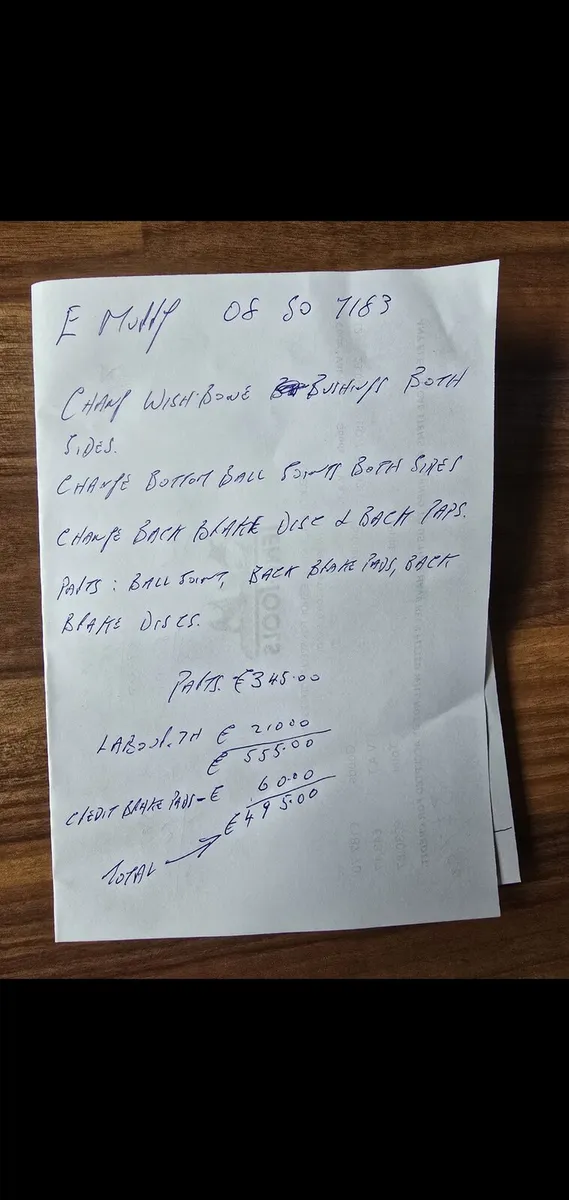 E Murphy 08 SO 7183
CHANGE WISHBONE BUSHINGS BOTH
SIDES.
CHANGE BOTTOM BALL JOINTS BOTH SIDES
CHANGE BACK BRAKE DISC & BACK PADS.
PARTS: BALL JOINT, BACK BRAKE PADS, BACK
BRAKE DISCS.
PARTS. €345.00
LABOUR. 7H € 210.00
€ 555.00
CREDIT BRAKE PADS - € 60.00
€495.00
TOTAL